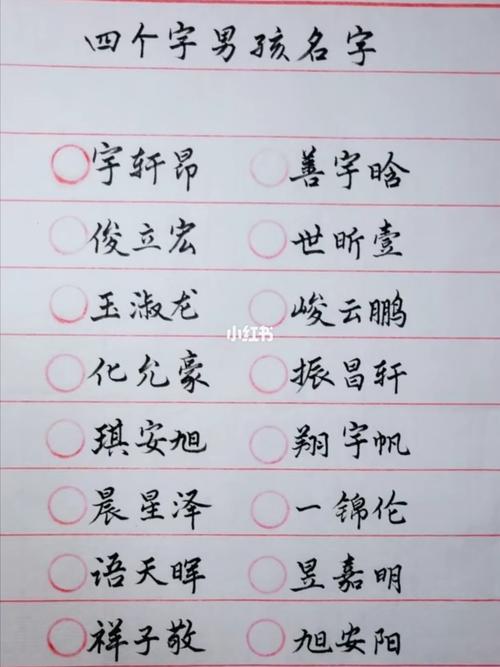 四个字男孩名字
宇轩昂 善宇晗
俊立宏 世昕壹
玉淑龙 峻云鹏
小红书
化允豪 振昌轩
琪安旭 翔宇帆
晨星泽 一锦伦
语天晖 昱嘉明
祥子敬 旭安阳